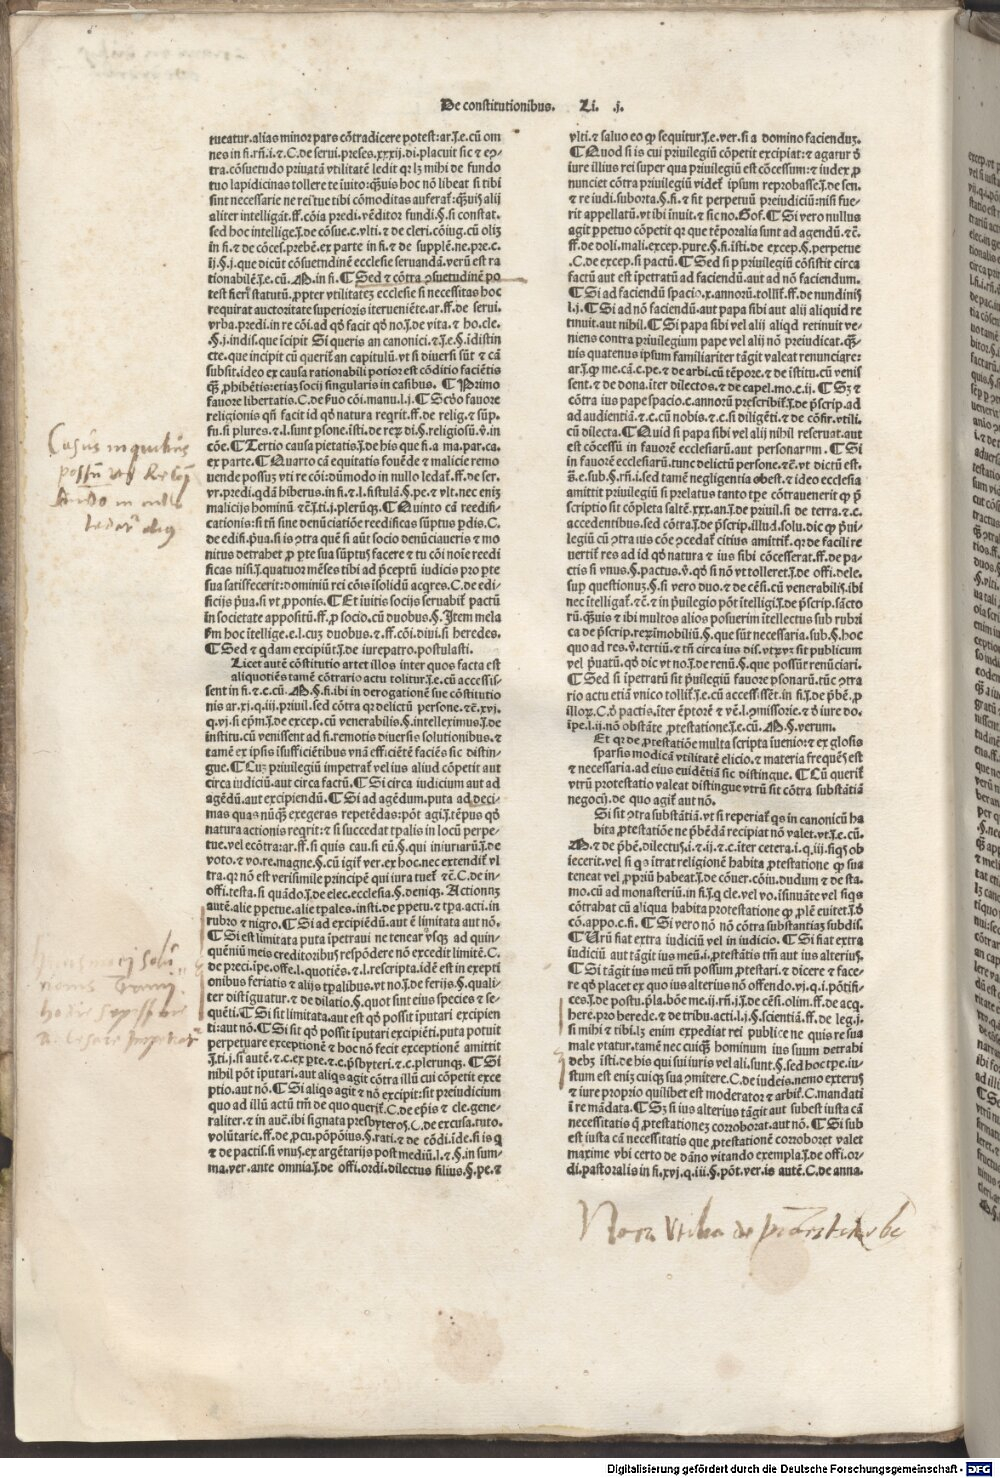 De constitutionibus. Li. .j.
tueatur.alias minor pars cōtradicere potest:ar.ī.e.cū om
nes in fi.rn̄.i.⁊ C.de serui.preses.xxxij.di.placuit sic ⁊ eꝯ-
tra.cōsuetudo priuatā vtilitatē ledit qr lꝫ mihi de fundo
tuo lapidicinas tollere te īuito:qͣuis hoc nō libeat si tibi
sint necessarie ne rei tue tibi cōmoditas auferat᷑:qͣuis alij
aliter intelligāt.ff.cōia predi.vēditor fundi.§.si constat.
sed hoc intellige.ī.de cōsue.c.vlti.⁊ de cleri.cōiug.cū oliꝫ
in fi.⁊ de cōces.prebē.ex parte in fi.⁊ de supplē.ne.pre.c.
ij.§.j.que dicūt cōsuetudinē ecclesie seruandā.verū est ra
tionabilē.ī.e.cū.M.in fi.¶Sed ⁊ cōtra ꝯsuetudinē po
test fieri statutū.ꝓpter vtilitateꝫ ecclesie si necessitas hoc
requirat auctoritate superioris iterueniēte.ar.ff.de serui.
vrba.predi.in re cōi.ad qd facit qd no.ī.de vita.⁊ ho.cle.
§.j.indis.que īcipit Si queris an canonici.⁊.ī.e.§.idistin
cte.que incipit cū querit᷑ an capitulū.vt si diuersi sūt ⁊ cā
subsit.ideo ex causa rationabili potior est cōditio faciētis
qͣꝫ ꝓhibētis:etiaꝫ socij singularis in casibus. ¶Primo
fauore libertatis.C.de s̄uo cōi.manu.l.j.¶Scd̄o fauore
religionis qn̄ facit id qd natura reqrit.ff.de relig.⁊ sūp.
fu.si plures.⁊.l.sunt psone.isti.de reꝝ di.§.religiosū.v̄.in
cōe.¶Tertio causa pietatis.ī.de his que fi.a ma.par.ca.
ex parte.¶Quarto cā equitatis fouēde ⁊ malicie remo
uende possuꝫ vti re cōi:dūmodo in nullo ledat᷑.ff.de ser.
vr.predi.qdā hiberus.in fi.⁊.l.fistulā.§.pe.⁊ vlt.nec eniꝫ
malicijs hominū ⁊c̄.ī.ti.j.plerūqꝫ.¶Quinto cā reedifi-
cationis:si tn̄ sine denūciatiōe reedificas sūptus ꝑdis.C.
de edifi.pͥua.si is ꝯtra quē si aūt socio denūciaueris ⁊ mo
nitus detrahet ꝓ ꝑte sua sūptuꝫ facere ⁊ tu cōi noīe reedi
ficas nisi.ī.quatuor mēses tibi ad ꝑceptū iudicis pro ꝑte
sua satisfecerit:dominiū rei cōis īsolidū acqres.C.de edi-
ficijs pͥua.si vt ꝓponis.¶Et īuitis socijs seruabit᷑ pactū
in societate appositū.ff.ꝓ socio.cū duobus.§.Item mela
s̄m hoc ītellige.e.l.cuꝫ duobus.⁊.ff.cōi.diui.si heredes.
¶Sed ⁊ qdam excipiūt.ī.de iurepatro.postulasti.
Licet autē cōstitutio artet illos inter quos facta est
aliquotiēs tamē cōtrario actu tolitur.ī.e.cū accessis-
sent in fi.⁊.c.cū.M.§.fi.ibi in derogationē sue cōstitutio
nis ar.xj.q.iij.priuil.sed cōtra qr delictū persone.⁊c̄.xvj.
q.vj.si epm̄.ī.de excep.cū venerabilis.§.intelleximus.ī.de
institu.cū venissent ad fi.remotis diuersis solutionibus.⁊
tamē ex ipsis īsufficiētibus vnā efficiētē faciēs sic distin-
gue.¶Cuꝫ priuilegiū impetrat᷑ vel ius aliud cōpetit aut
circa iudiciū.aut circa factū.¶Si circa iudicium aut ad
agēdū.aut excipiendū.¶Si ad agēdum.puta ad deci-
mas quas nūqͣꝫ exegeras repetēdas:pōt agi.ī.tēpus qd
natura actionis reqrit:⁊ si succedat tpalis in locū perpe-
tue.vel ecōtra:ar.ff.si quis cau.si eū.§.qui iniuriarū.ī.de
voto.⁊ vo.re.magne.§.cū igit᷑ ver.ex hoc.nec extendit᷑ vl
tra.qr nō est verisimile principē qui iura tuet᷑ ⁊c̄.C.de in-
offi.testa.si quādo.ī.de elec.ecclesia.§.deniqꝫ. Actionuꝫ
autē.alie ꝑpetue.alie tpales.insti.de ꝑpetu.⁊ tpa.acti.in
rubro ⁊ nigro.¶Si ad excipiēdū.aut ē limitata aut nō.
¶Si est limitata puta īpetraui ne tenear vsqꝫ ad quin-
quēniū meis creditoribus respōdere nō excedit limitē.C.
de preci.īpe.offe.l.quotiēs.⁊.l.rescripta.idē est in exepti
onibus feriatis ⁊ alijs tpalibus.vt no.ī.de ferijs.§.quali-
ter distiguatur.⁊ de dilatio.§.quot sint eius species ⁊ se-
quēti.¶Si sit limitata.aut est qd possit iputari excipien
ti:aut nō.¶Si sit qd possit iputari excipiēti.puta potuit
perpetuare exceptionē ⁊ hoc nō fecit exceptionē amittit
ī.ti.j.si autē.⁊.c.ex pte.⁊.c.pͥsbyteri.⁊.c.plerunqꝫ.¶Si
nihil pōt iputari.aut aliqs agit cōtra illū cui cōpetit exce
ptio.aut nō.¶Si aliqs agit ⁊ nō excipit:sit preiudicium
quo ad illū actū tm̄ de quo querit᷑.C.de ep̄is ⁊ cle.gene-
raliter.⁊ in autē.ibi signata presbyteros.C.de excusa.tuto.
volūtarie.ff.de ꝓcu.pōpōius.§.rati.⁊ de cōdi.ide.si is q
⁊ de pactis.si vnus.ex argētarijs post mediū.l.⁊.§.in sum-
ma.ver.ante omnia.ī.de offi.ordi.dilectus filius.§.pe.⁊
vlti.⁊ saluo eo qd sequitur.ī.e.ver.si a domino faciendū.
¶Quod si is cui priuilegiū cōpetit excipiat:⁊ agatur d̄
iure illius rei super qua priuilegiū est cōcessum:⁊ iudex ꝓ
nunciet cōtra priuilegiū videt᷑ ipsum reprobasse.ī.de sen.
⁊ re iudi.suborta.§.fi.⁊ fit perpetuū preiudiciū:nisi fue-
rit appellatū.vt ibi īnuit.⁊ sic no.Gof.¶Si vero nullus
agit ꝑpetuo cōpetit qr que tēporalia sunt ad agendū.⁊c̄.
ff.de doli.mali.excep.pure.§.fi.isti.de excep.§.perpetue
.C.de excep.si pactū.¶Sed si ꝑ priuilegiū cōsistit circa
factū aut est īpetratū ad faciendū.aut ad nō faciendum.
¶Si ad faciendū spacio.x.annorū.tollit᷑.ff.de nundinis
l.j.¶Si ad nō faciendū.aut papa sibi aut alij aliquid re
tinuit.aut nihil.¶Si papa sibi vel alij aliqd retinuit ve-
niens contra priuilegium pape vel alij nō preiudicat.qͣꝫ-
uis quatenus ipsum familiariter tāgit valeat renunciare:
ar.ī.qd me.cā.c.pe.⁊ de arbi.cū tēpore.⁊ de īstitu.cū venis
sent.⁊ de dona.iter dilectos.⁊ de capel.mo.c.ij.¶Sꝫ ⁊
cōtra ius pape spacio.c.annorū prescribit᷑.ī.de pͥscrip.ad
ad audientiā.⁊.c.cū nobis.⁊.c.si diligēti.⁊ de cōfir.vtili.
cū dilecta.¶Quid si papa sibi vel alij nihil reseruat.aut
est cōcessū in fauorē ecclesiarū.aut personarum.¶Si
in fauorē ecclesiarū.tunc delictū persone.⁊c̄.vt dictū est.
s̄.e.sub.§.rn̄.i.sed tamē negligentia obest.⁊ ideo ecclesia
amittit priuilegiū si prelatus tanto tpe cōtrauenerit qd pͥ
scriptio sit cōpleta saltē.xxx.an.ī.de priuil.si de terra.⁊.c.
accedentibus.sed cōtra.ī.de pͥscrip.illud.solu.dic qd pͥui-
legiū cū ꝯtra ius cōe ꝯcedat᷑ citius amittit᷑.qr de facili re
uertit᷑ res ad id qd natura ⁊ ius sibi cōcesserat.ff.de pa-
ctis si vnus.§.pactus.v̄.qd si nō vt tolleret.ī.de offi.dele.
sup questionuꝫ.§.si vero duo.⁊ de cēsi.cū venerabilis.ibi
nec ītelligat᷑.⁊c̄.⁊ in pͥuilegio pōt ītelligi.ī.de pͥscrip.sācto
rū.qͣuis ⁊ ibi multos alios posuerim itellectus sub rubri
ca de pͥscrip.reꝝ īmobiliū.§.que sūt necessaria.sub.§.hoc
quo ad res.v̄.tertiū.⁊ tn̄ circa ius dis.vtrūꝫ sit publicum
vel pͥuatū.qd dic vt no.ī.de renū.§.que possūt renūciari.
¶Sed si īpetratū sit pͥuilegiū fauore psonarū.tūc ꝯtra
rio actu etiā vnico tollit᷑.ī.e.cū access.ssēt.in fi.ī.de pͥbē.ꝓ
illoꝝ.C.d̄ pactis.īter ēptorē ⁊ vē.l.ꝯmissorie.⁊ d̄ iure do.
īpe.l.ii.nō obstāte ꝓtestatione.ī.e.cū.M.§.verum.
Et qr de ꝓtestatiōe multa scripta īuenio:⁊ ex glosis
sparsis modicā vtilitatē elicio.⁊ materia frequēs est
⁊ necessaria.ad eius euidētiā sic distingue.¶Cū querit᷑
vtrū protestatio valeat distingue vtrū sit cōtra substātiā
negocij.de quo agit᷑ aut nō.
Si sit ꝯtra substātiā.vt si reperiat᷑ qs in canonicū ha
bita ꝓtestatiōe ne pͥbēdā recipiat nō valet.vt.ī.e.cū.
M.⁊ de pͥbē.dilectus.i.⁊.ij.⁊.c.iter cetera.i.q.iij.siqs ob
iecerit.vel si qs itrat religionē habita ꝓtestatione qd sua
teneat vel ꝓpriū habeat.ī.de cōuer.cōiu.dudum ⁊ de sta.
mo.cū ad monasteriū.in fi.ī.q cle.vel vo.īsinuāte vel siqs
cōtrahat cū aliqua habita protestatione qd ꝓlē euitet.ī.d̄
cō.appo.c.fi.¶Si vero nō nō cōtra substantiaꝫ subdis.
¶Utrū fiat extra iudiciū vel in iudicio. ¶Si fiat extra
iudiciū aut tāgit ius meū.i.ꝓtestātis tm̄ aut ius alterius.
¶Si tāgit ius meū tm̄ possum ꝓtestari.⁊ dicere ⁊ face-
re qd placet ex quo ius alterius nō offendo.vi.q.i.pōtifi-
ces.ī.de postu.pͥla.bōe me.ij.rn̄.j.ī.de cēsi.olim.ff.de acq.
here.pro herede.⁊ de tribu.acti.l.j.§.scientiā.ff.de leg.j.
si mihi ⁊ tibi.lꝫ enim expediat rei publice ne quis re sua
male vtatur.tamē nec cuiqͣꝫ hominum ius suum detrahi
debꝫ isti.de his qui sui iuris vel ali.sunt.§.sed hoc tpe.iu-
stum est eniꝫ cuiqꝫ sua ꝯmitere.C.de iudeis.nemo exterus
⁊ iure proprio quilibet est moderator ⁊ arbit᷑.C.mandati
in re mādata.¶Sꝫ si ius alterius tāgit aut subest iusta cā
necessitatis q ꝓtestationeꝫ corroborat.aut nō.¶Si sub
est iusta cā necessitatis que ꝓtestationē corroboret valet
maxime vbi certo de dāno vitando exempla.ī.de offi.or-
di.pastoralis in fi.xvj.q.iij.§.pōt.ver.is autē.C.de anna.